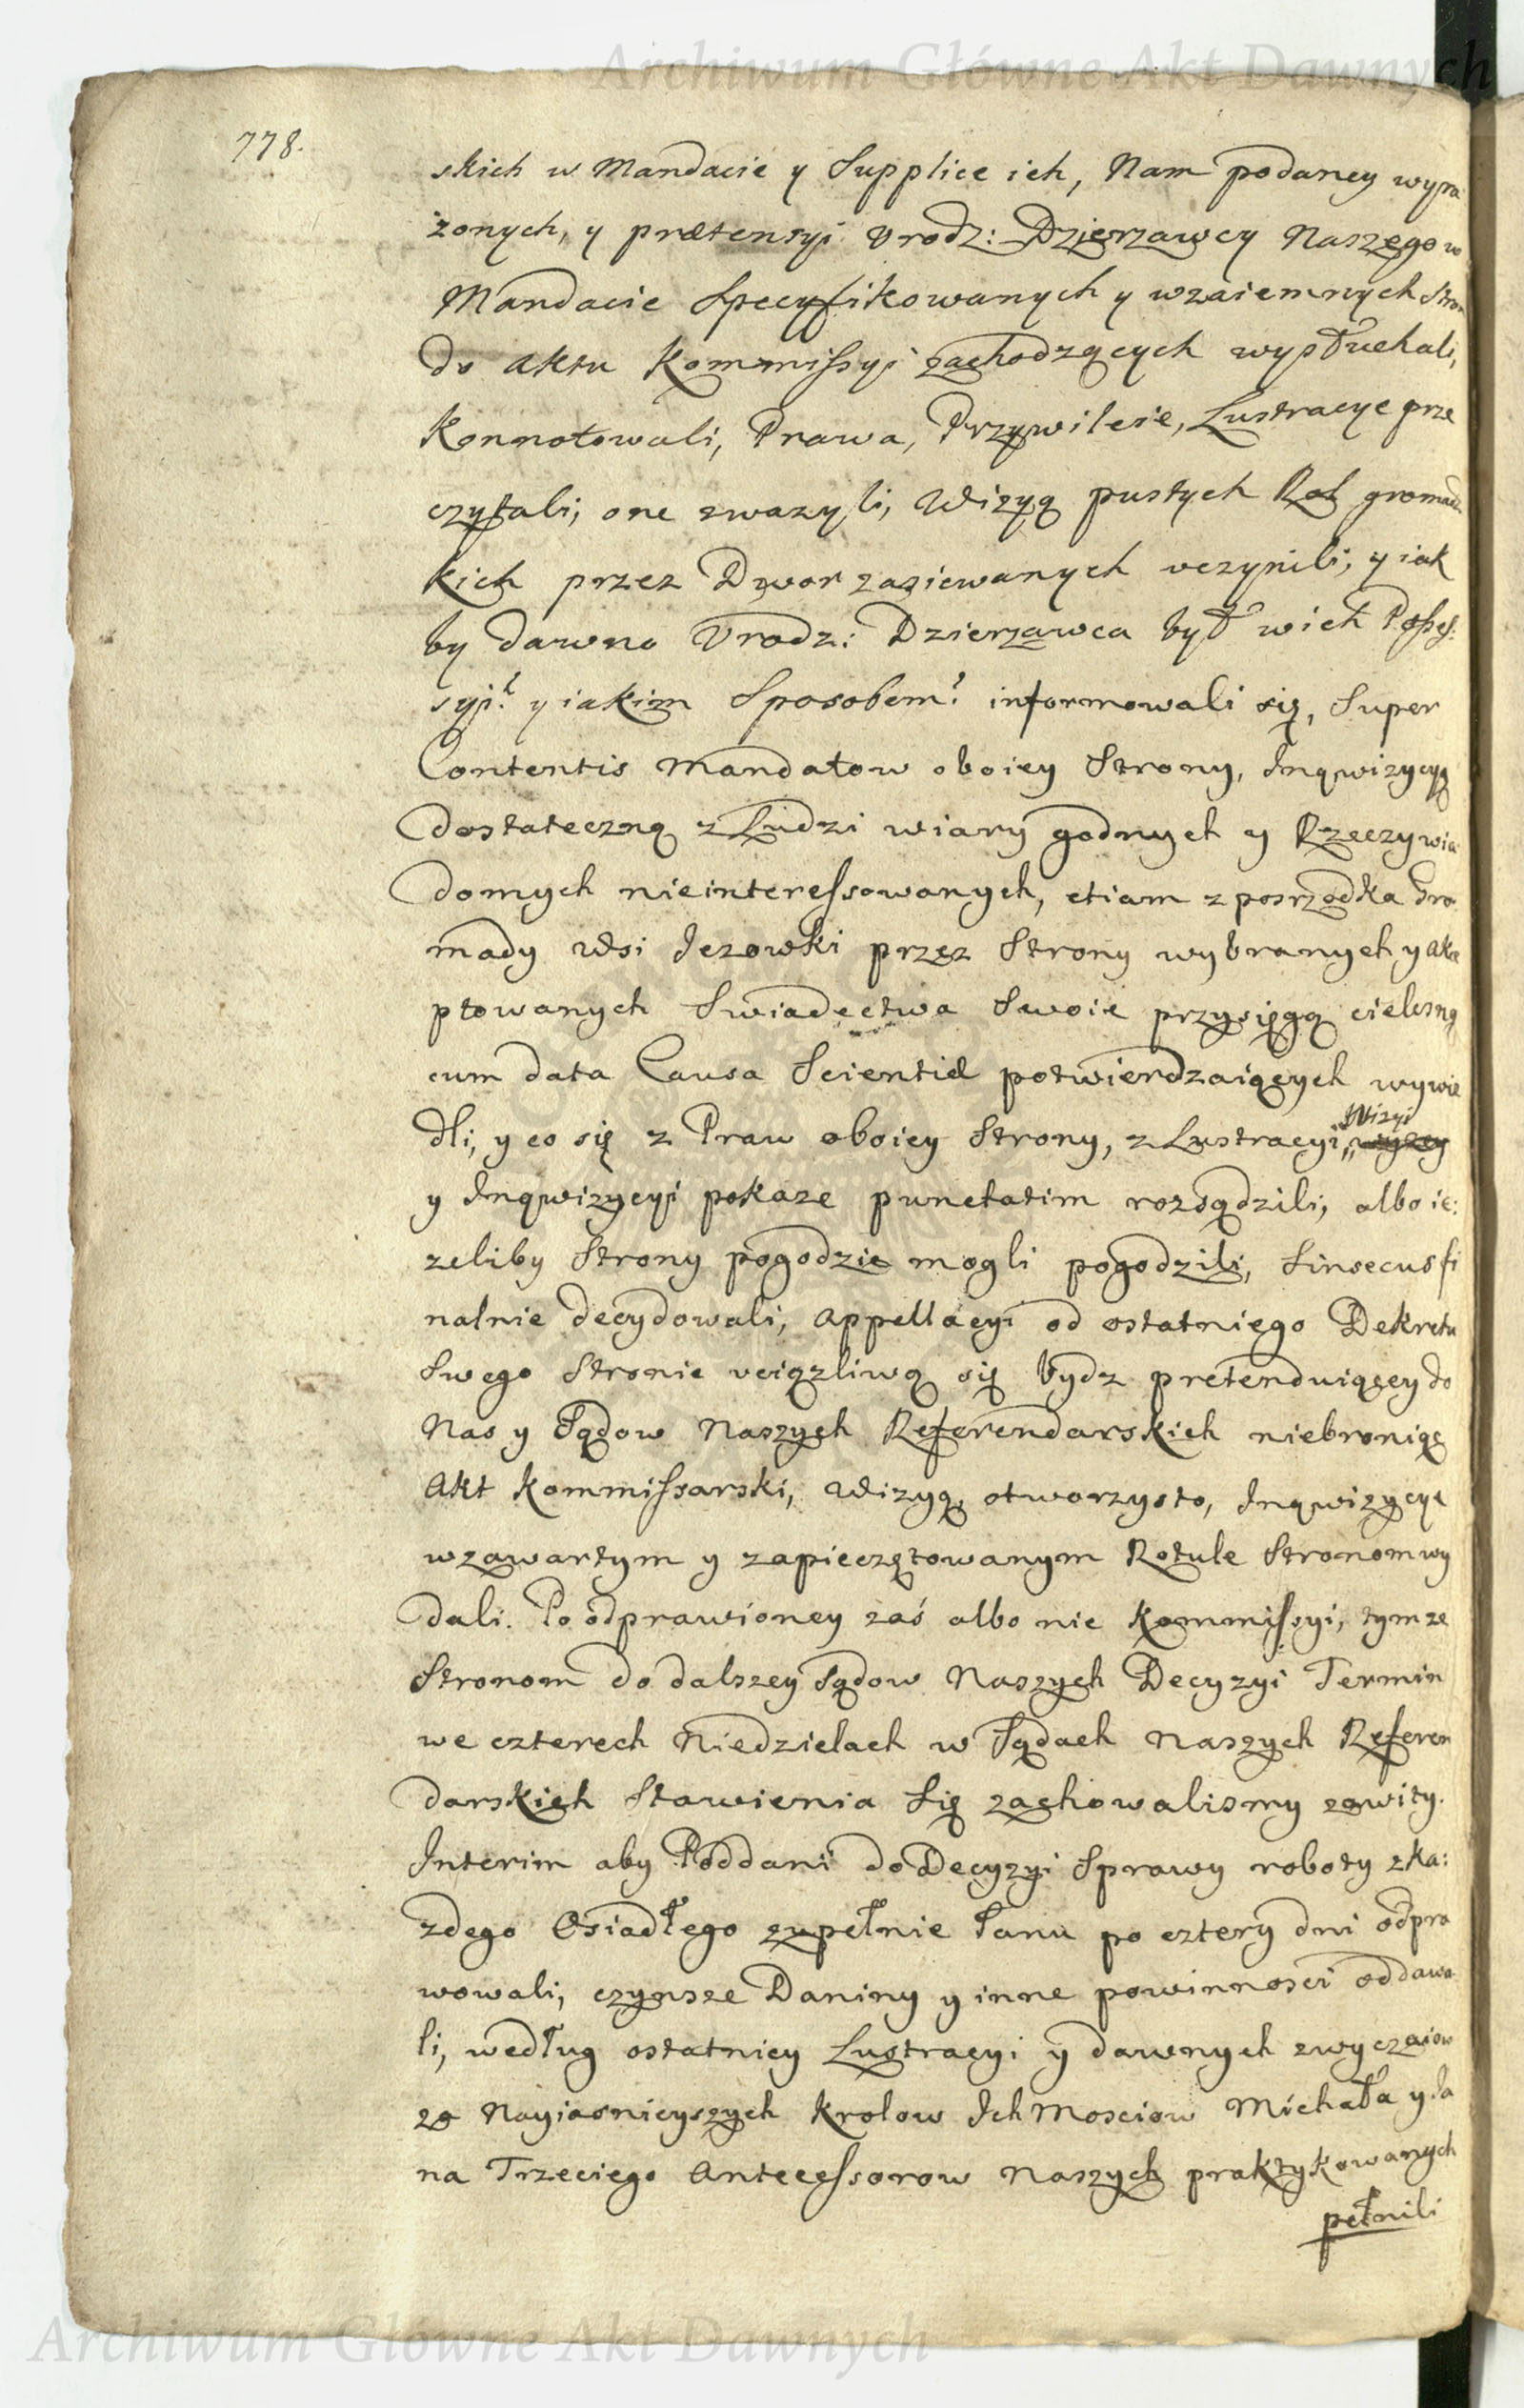 Archiwum Główne Akt Dawnych
778.
skich w Mandacie y Supplice ich, Nam podaney wyra
żonych, y prætensyi Urodz: Dzierzawcy Naszego w
Mandacie Specyfikowanych y wzaiemnych Stron
do aktu Kommissyi zachodzących wysłuchali,
Konnotowali, Prawa, Przywileie, Lustracye prze
czytali, one zwazyli, Wizyą pustych Rol gromadz
kich przez Dwor zasiewanych uczynili, y iak
by dawno Urodz: Dzierzawca był wich Posses:
syi? y iakim Sposobem? informowali się, Super
Contentis Mandatow oboiey Strony, Inqwizycyą
dostateczną z Ludzi wiary godnych y Rzeczy wia
domych nieinteressowanych, etiam z posrzodka Gro
mady Wsi Jezowki przez Strony wybranych y akce
ptowanych Swiadectwa Swoie przysięgą cielesną
cum data Causa Scientiæ potwierdzaiących wywie
dli, y co się z Praw oboiey Strony, z Lustracyi, Wizyi
y Inqwizycyi pokaze punctatim rozsądzili, albo ie:
zeliby Strony pogodzic mogli pogodzili, Sinsecus fi
nalnie decydowali, Appellacyi od ostatniego Dekretu
Swego Stronie uciązliwą się bydz pretenduiącey do
Nas y Sądow Naszych Referendarskich niebroniąc
Akt Kommissarski, Wizyą, otworzysto, Inqwizycye
wzawartym y zapieczętowanym Rotule Stronom wy
dali. Po odprawioney zaś albo nie Kommissyi, tymze
Stronom do dalszey Sądow Naszych Decyzyi Termin
we czterech Niedzielach w Sądach Naszych Referen
darskich Stawienia Się zachowalismy zawity.
Interim aby Poddani do Decyzyi Sprawy roboty z ka:
zdego Osiadłego zupełnie Łanu po cztery dni odpra
wowali, czynsze Daniny y inne powinnosci oddawa
li, według ostatniey Lustracyi y dawnych zwyczaiow
za Nayiasnieyszych Krolow Ich Mosciow Michała y Ja
na Trzeciego Antecessorow Naszych praktykowanych
pełnili
Archiwum Główne Akt Dawnych